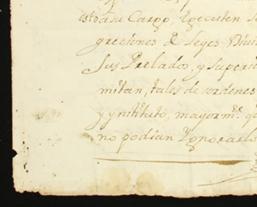 esto a su Cargo, Executen s
greciones de Leyes Divin
sus Prelados, y superio
mitan, tales desordenes
y ynstituto, mayormte. q
no podian Ygnorarlo